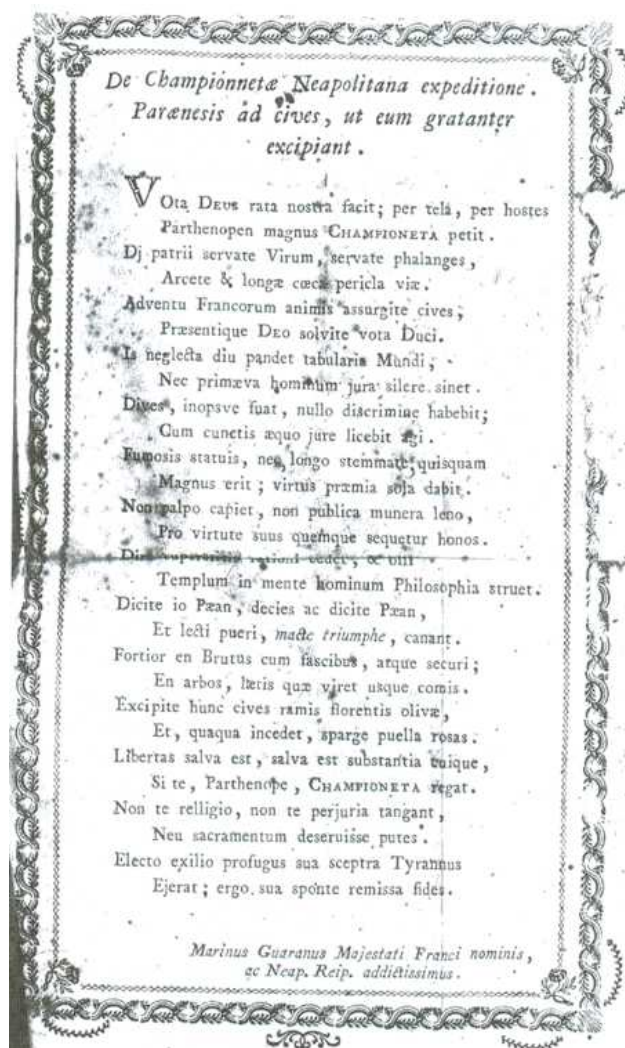 De Championnetæ Neapolitana expeditione.
Parænesis ad cives, ut eum gratanter
excipiant.
VOta DEUS rata nostra facit; per tela, per hostes
Parthenopen magnus CHAMPIONETA petit.
Dj patrii servate Virum, servate phalanges,
Arcete & longæ cœca pericla viæ.
Adventu Francorum animis assurgite cives;
Præsentique DEO solvite vota Duci.
Is neglecta diu pandet tabularia Mundi;
Nec primæva hominum jura silere sinet.
Dives, inopsve fuat, nullo discrimine habebit;
Cum cunctis æquo jure licebit agi.
Fumosis statuis, nec longo stemmate quisquam
Magnus erit; virtus præmia sola dabit.
Non palpo capiet, non publica munera leno,
Pro virtute suus quemque sequetur honos.
cedet, &
Templum in mente hominum Philosophia struet.
Dicite io Pæan, decies ac dicite Pæan,
Et lecti pueri, macte triumphe, canant.
Fortior en Brutus cum fascibus, atque securi;
En arbos, lætis quæ viret usque comis.
Excipite hunc cives ramis florentis olivæ,
Et, quaqua incedet, sparge puella rosas.
Libertas salva est, salva est substantia cuique,
Si te, Parthenope, CHAMPIONETA regat.
Non te relligio, non te perjuria tangant,
Neu sacramentum deseruisse putes.
Electo exilio profugus sua sceptra Tyrannus
Ejerat; ergo sua sponte remissa fides.
Marinus Guaranus Majestati Franci nominis,
ac Neap. Reip. addictissimus.